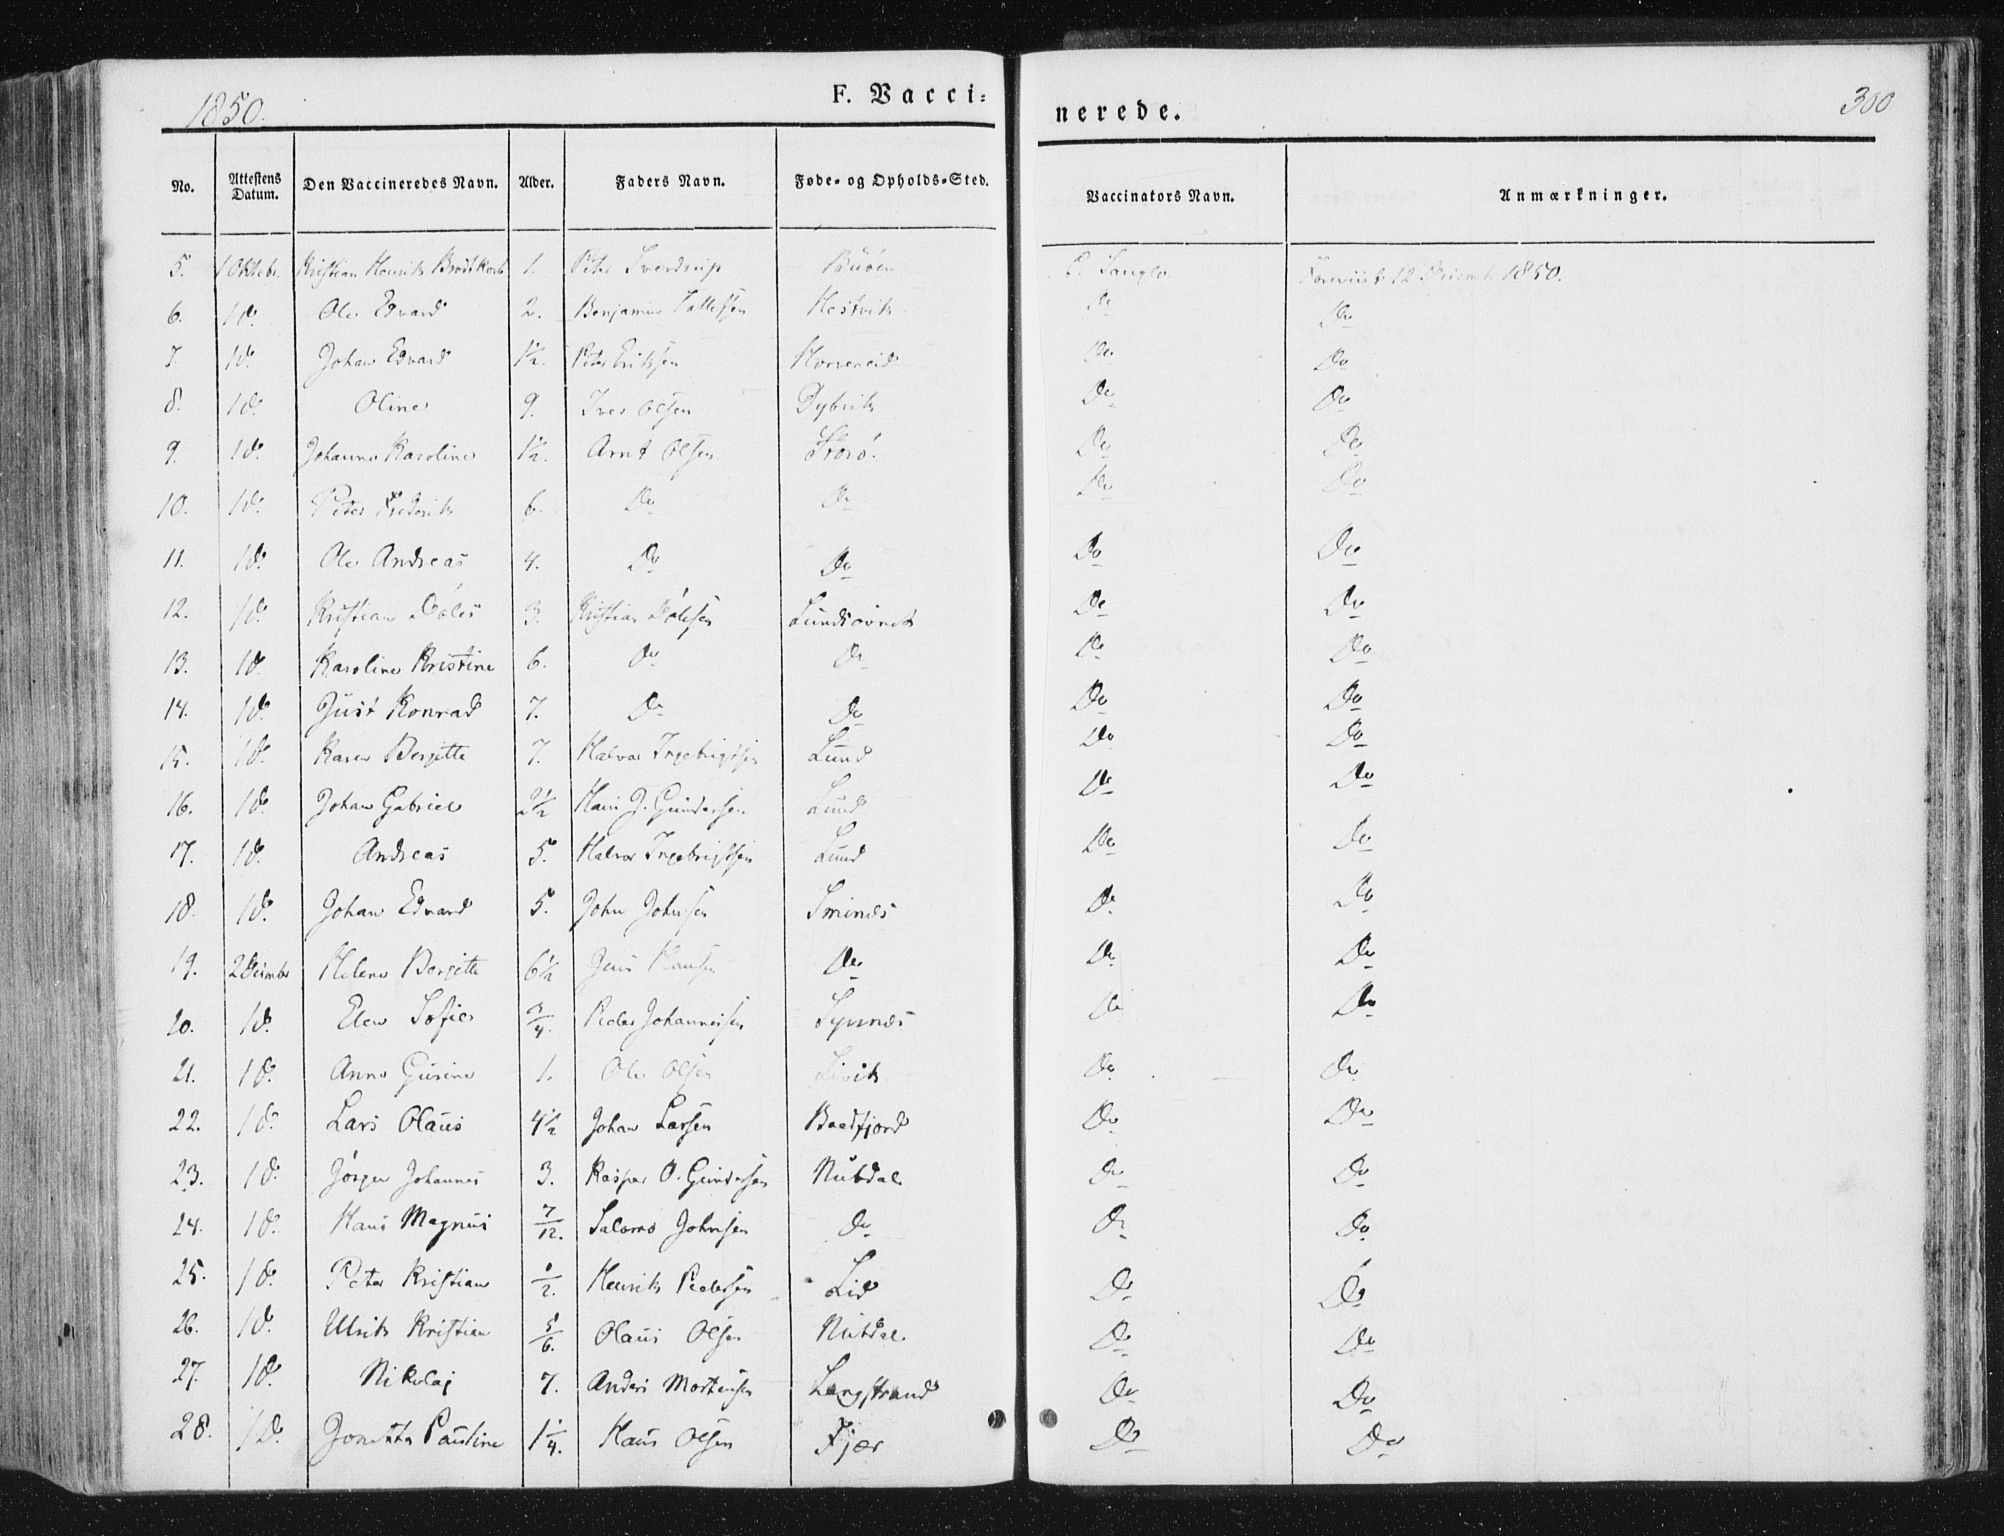 1850.
F. Vacci=
nerede.
300
No. Attestens Datum. Den Vaccineredes Navn. Alder. Faders Navn. Føde- og Opholds-Sted. Vaccinators Navn. Anmærkninger.
5. 1 Oktobr. Kristian Henrik 1. Peter Sverdrup Foreviist 12 Decemb. 1850.
6. 1 do. Ole Edvard 2. Benjamin Hestvik Do Do
7. 1 do. Johan Edvard 1½. Peter Eriksen Do Do
8. 1 do. Oline 9. Iver Olsen Dybvik Do Do
9. 1 do. Johanna Karoline 1½. Arnt Olsen Storø. Do Do
10. 1 do. Peter Frederik 6. Do Do Do Do
11. 1 do. Ole Andreas 4. Do Do Do Do
12. 1 do. Kristian 3. Kristian Do Do
13. 1 do. Karoline Kristine 6. Do Do Do Do
14. 1 do. Just Konrad 7. Do Do Do Do
15. 1 do. Karen Bergitta 7. Halvor Ingebrigtsen Lund Do Do
16. 1 do. Johan Gabriel 2½ Hans J. Gundersen Lund Do Do
17. 1 do. Andreas 5. Halvor Ingebrigtsen Lund Do Do
18. 1 do. Johan Edvard 5. John Johnsen Smines Do Do
19. 2 Decimbr Helena Bergitta 6½ Jens Hansen Do Do Do
20. 1 do. Elen Sofie 3/4. Peder Johannesen Synnes Do Do
21. 1 do. Anna Gurine 1. Ole Olsen Livik Do Do
22. 1 do. Lars Olaus 4½ Johan Larsen Baadfjord Do Do
23. 1 do. Jørgen Johannes 3. Kasper O. Gundersen Nubdal Do Do
24. 1 do. Hans Magnus 7/12. Salomo Johnsen Do Do Do
25. 1 do. Peter Kristian 1/2. Henrik Pedersen Lid Do Do
26. 1 do. Ulrik Kristian 5/6. Olaus Olsen Nubdal Do Do
27. 1 do. Nikolaj 7. Anders Mortensen Langstrand Do Do
28. 1 do. Jonetta Pauline 1¼. Hans Olsen Fjær Do Do